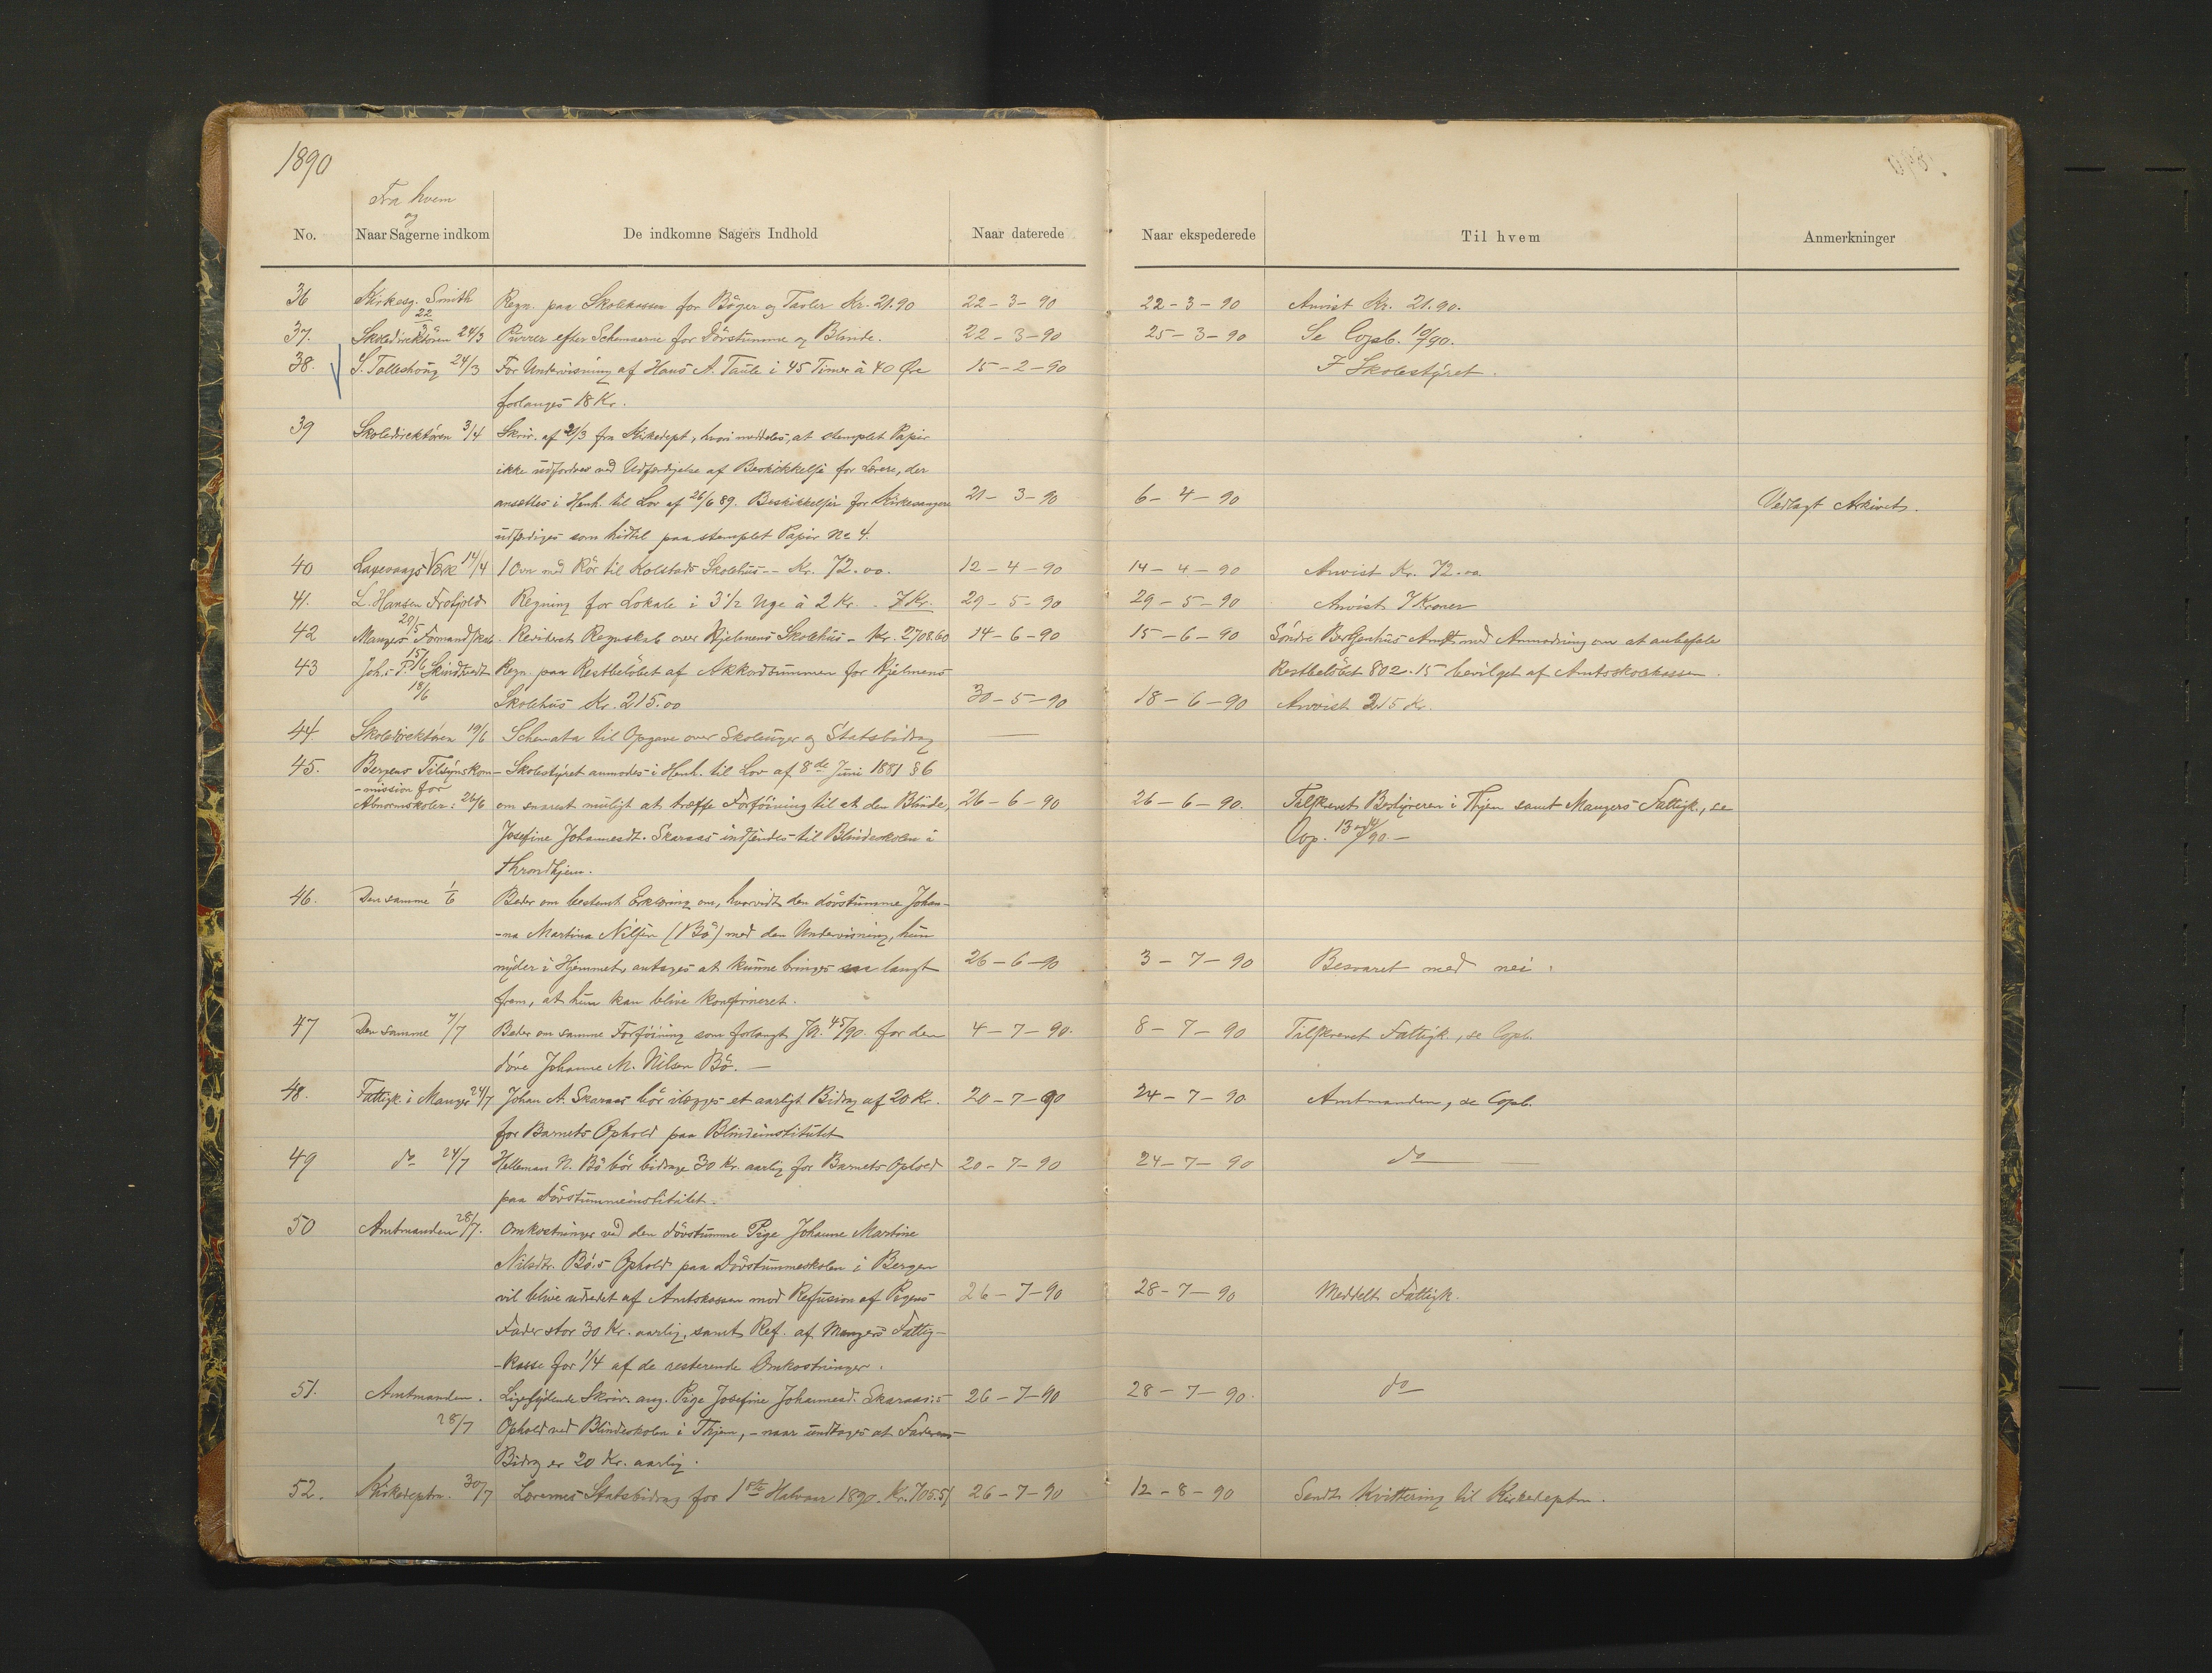 1890
Fra hvem
og
No. Naar Sagerne indkom De indkomne Sagers Indhold Naar daterede Naar ekspederede Til hvem Anmerkninger
36 Kirkesg. Smith Regn. paa Skolekassen for Bøger og Tavler Kr. 21.90 22-3-90 22-3-90 Anvist Kr. 21.90.
22/3
37. Skoledirektøren 24/3 Purrer efter Schemaerne for Døvstumme og Blinde. 22-3-90 25-3-90 Se Copb. 10/90.
38. S. Talleshoug 24/3 For Undervisning af Hans A. Taule i 45 Timer à 40 Øre 15-2-90 I Skolestyret.
forlanges 18 Kr.
39 Skoledirektøren 3/4 Skriv. af 21/3 fra Kirkedept, hvori meddeles, at stemplet Papir
ikke udfordres ved Udferdigelse af Beskikkelse for Lærere, der
ansættes i Henh. til Lov af 26/6 89. Beskikkelser for Kirkesangere 21-3-90 6-4-90 Vedlagt Arkivet.
udferdiges som hidtil paa stemplet Papir No 4.
40 Laxevaags Værk 14/4 1 Ovn med Rør til Kolstads Skolehus -- Kr. 72.00. 12-4-90 14-4-90 Anvist Kr. 72.00
41. L. Hansen Frotjold Regning for Lokale i 3 1/2 Uge à 2 Kr. - 7 Kr. 29-5-90 29-5-90 Anvist 7 Kroner
29/5
42 Mangers Formandskab. Revideret Regnskab over Hjelmens Skolehus - Kr. 2708.60 14-6-90 15-6-90 Søndre Bergenhus Amt med Anmodning om at anbefale
15/6
43 Johs. P. Skindtvedt Regn. paa Restbeløbet af Akkordsummen for Hjelmens Restbeløbet 802.15 bevilget af Amtsskolekassen.
18/6 Skolehus Kr. 215.00 30-5-90 18-6-90 Anvist 215 Kr.
44 Skoledirektøren 19/6 Schemata til Opgave over Skoleuger og Statsbidrag —
45. Bergens Tilsynskom- Skolestyret anmodes i Henh. til Lov af 8de Juni 1881 § 6
-mission for
Abnormskoler: 26/6 om snarest muligt at træffe Forføining til at den Blinde, 26-6-90 26-6-90. Tilskrevet Bestyreren i Thjem samt Mangers Fattigk., se
Josefine Johannesdt. Skaraas indsendes til Blindeskolen i Cop. 13 og 14/90.-
Throndhjem.
46. Den samme 1/6 Beder om bestemt Erklæring om, hvorvidt den døvstumme Johan-
-na Martina Nilsen (Bø) med den Undervisning, hun
nyder i Hjemmet, antages at kunne bringes saa langt 26-6-90 3-7-90 Besvaret med nei.
frem, at hun kan blive konfirmeret.
47 Den samme 7/7 Beder om samme Forføining som forlangt Jn. 45/90. for den 4-7-90. 8-7-90 Tilskrevet Fattigk., se Copb.
døve Johanne M. Nilsen Bø. -
48. Fattigk. i Manger 24/7 Johan A. Skaraas bør ilægges et aarligt Bidrag af 20 Kr. 20-7-90 24-7-90 Amtmanden, se Copb.
for Barnets Ophold paa Blindeinstitutet
49 do 24/7 Helleman N. Bø bør bidrage 30 Kr. aarlig for Barnets Ophold 20-7-90 24-7-90 do —
paa Døvstummeinstitutet.
50 Amtmanden 28/7. Omkostninger ved den døvstumme Pige Johanne Martine
Nilsdtr. Bø's Ophold paa Døvstummeskolen i Bergen
vil blive udredet af Amtskassen mod Refusion af Pigens 26-7-90 28-7-90 Meddelt Fattigk.
Fader stor 30 Kr. aarlig, samt Ref. af Mangers Fattig-
-kasse for 1/4 af de resterende Omkostninger.
51. Amtmanden. Ligelydende Skriv. ang. Pige Josefine Johannesd. Skaraas:s 26-7-90 28-7-90. do
28/7 Ophold ved Blindeskolen i Thjem, - naar undtages at Faderens
Bidrag er 20 Kr. aarlig.
52. Kirkedeptn. 30/7 Lærernes Statsbidrag for 1ste Halvaar 1890. Kr. 705.51 26-7-90 12-8-90 Sendt Kvittering til Kirkedeptm.